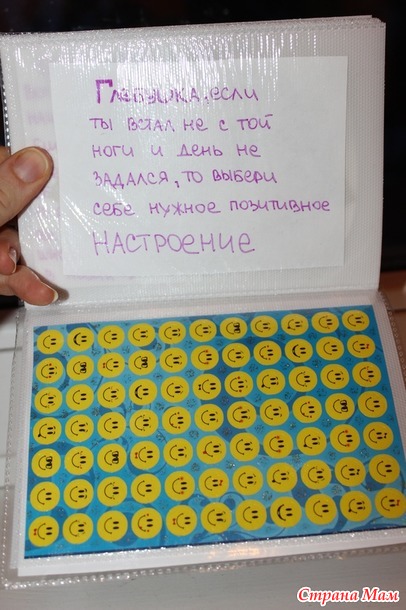 Глебушка, если
ты встал не с той
ноги и день не
задался, то выбери
себе нужное позитивное
настроение
Страна Мам